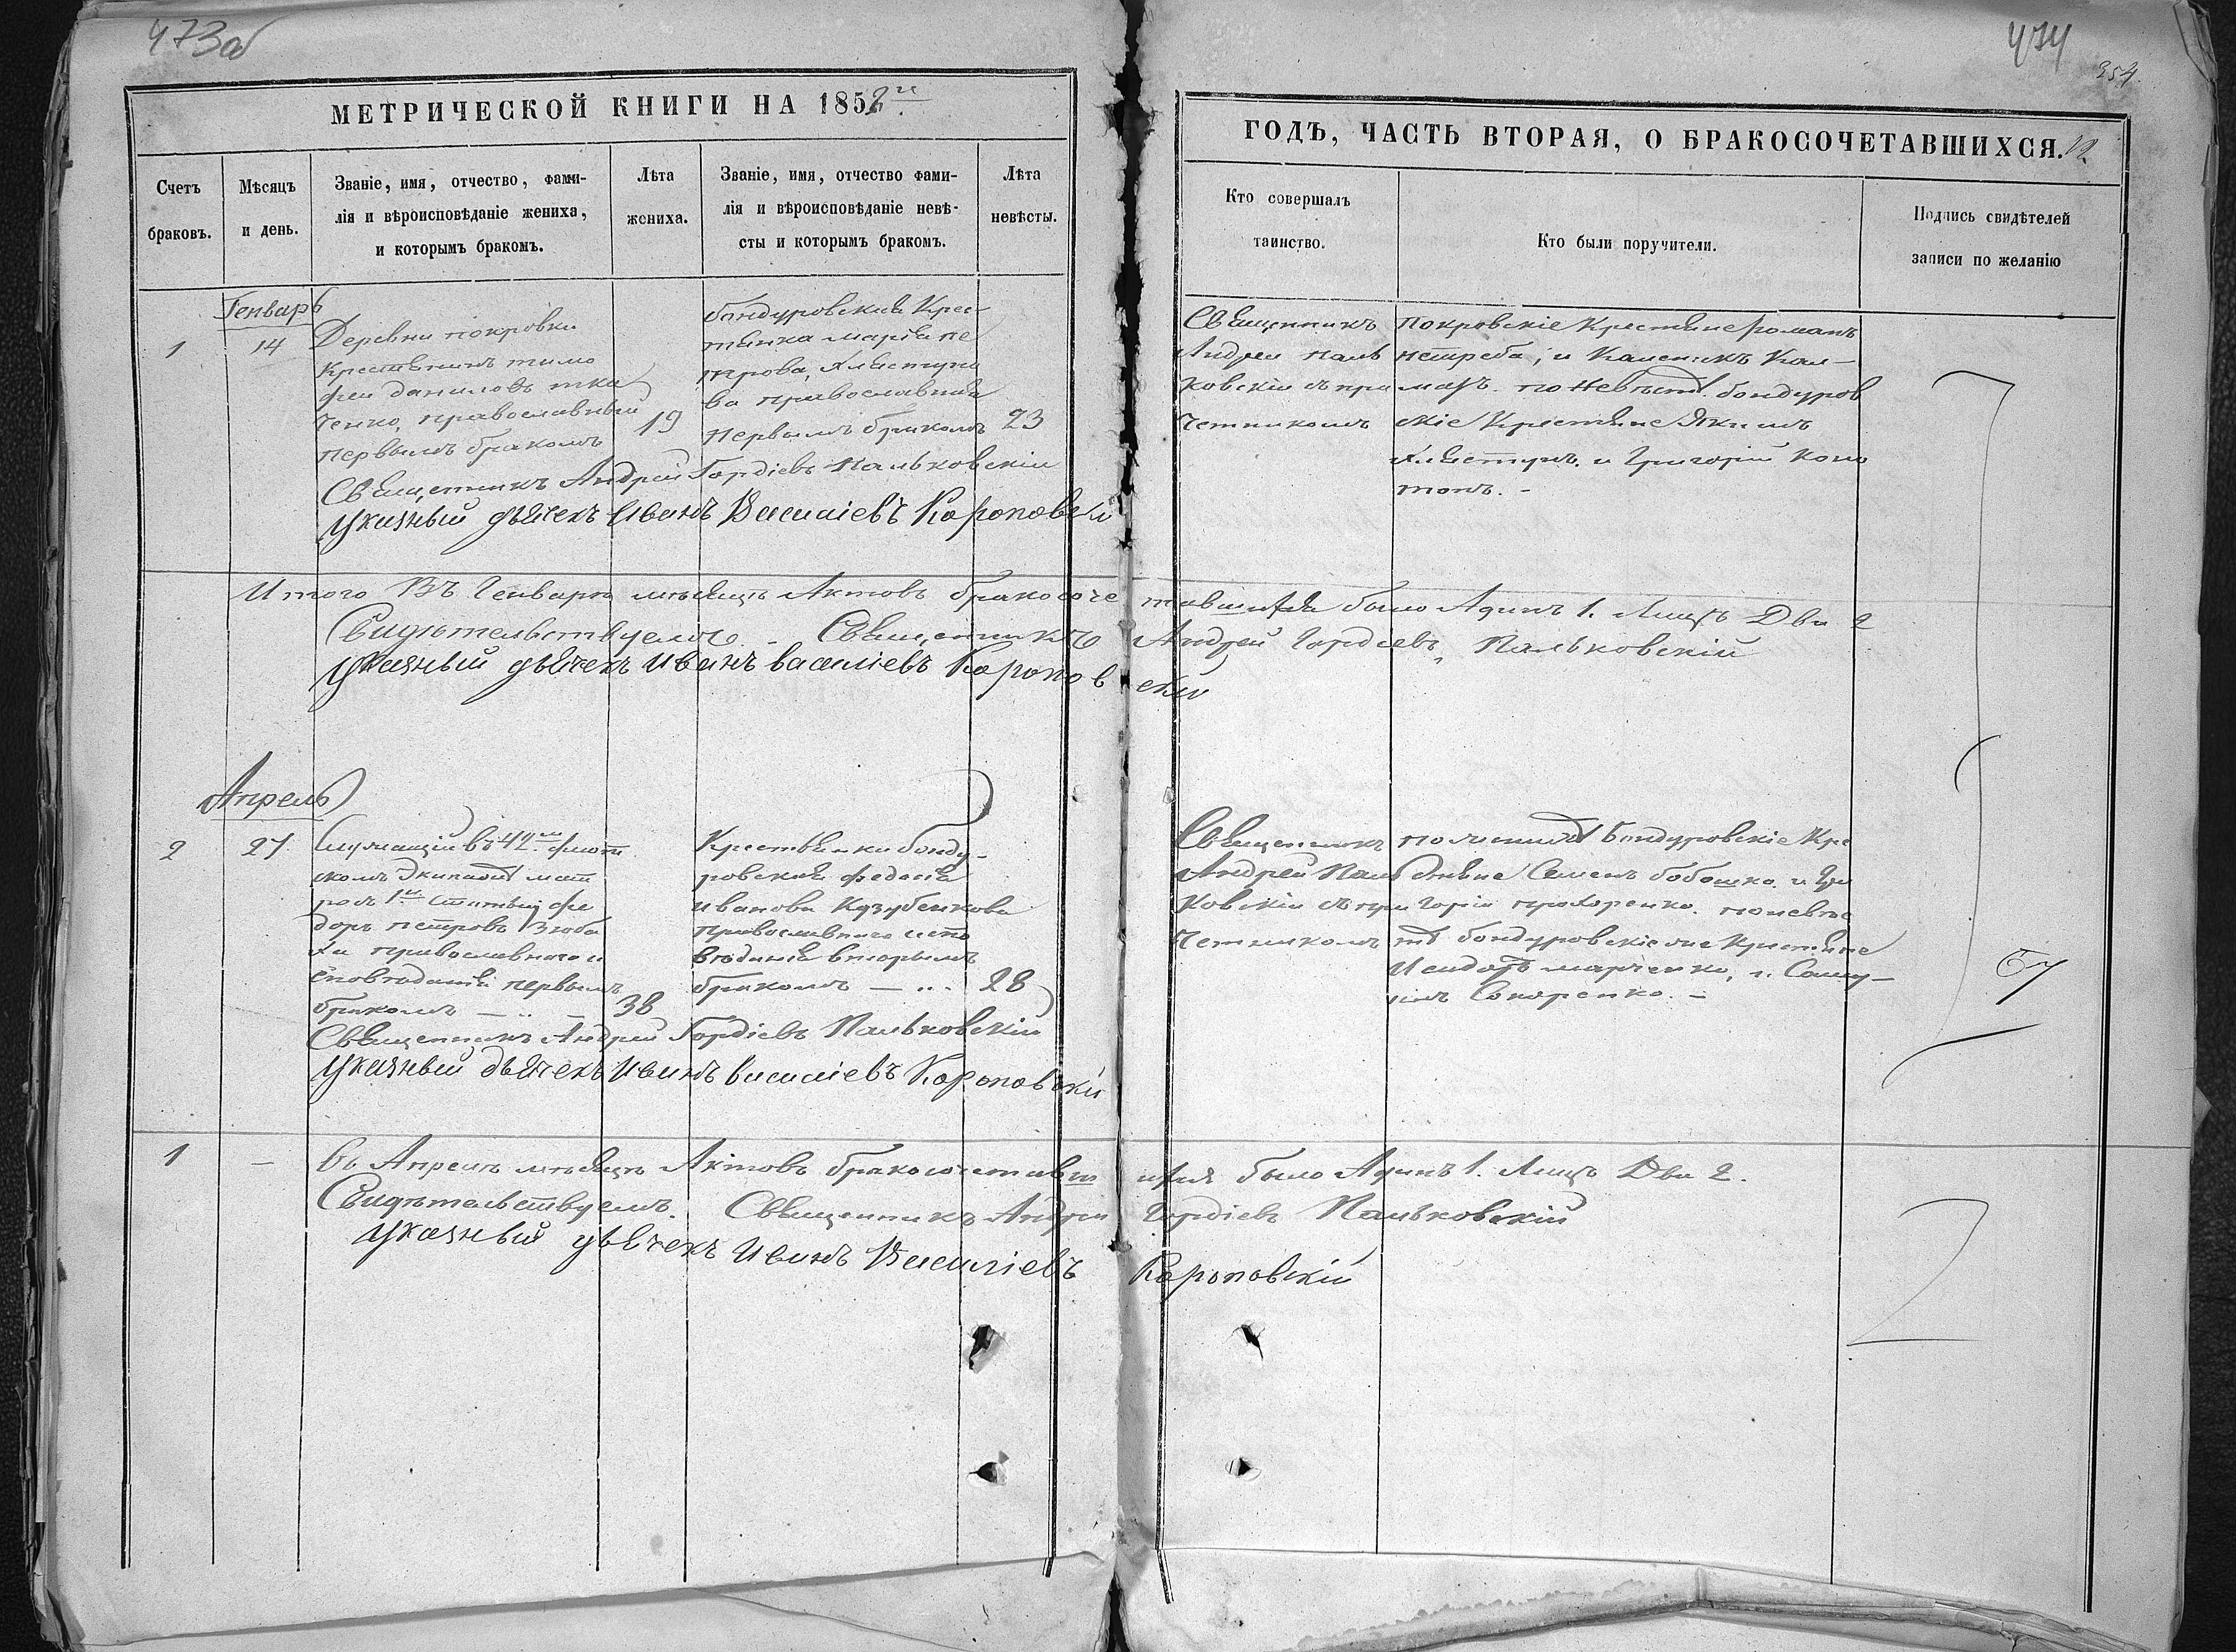 473об
474
354.
МЕТРИЧЕСКОЙ КНИГИ НА 1852й
ГОДЪ, ЧАСТЬ ВТОРАЯ, О БРАКОСОЧЕТАВШИХСЯ.
Счетъ
браковъ.
Мѣсяцъ
и день.
Званіе, имя, отчество, фами-
лія и вѣроисповѣданіе жениха,
и которымъ бракомъ.
Лѣта
жениха.
Званіе, имя, отчество фами-
лія и вѣроисповѣданіе невѣ-
сты и которымъ бракомъ.
Лѣта
невѣсты.
Кто совершалъ
таинство.
Кто были поручители.
Подпись свидѣтелей
записи по желанію
Генварь
1
14
Деревни покровки
Крестянинъ тимо
феи даниловъ тка
ченко, православный
первымъ бракомъ
19
бондуровская Крес
тянка марія пе
трова, Хлистуно
ва православная
Первымъ бракомъ
23
Священникъ
Андреи Паль
ковскій съ при
четникомъ
Покровскіе Крестяне романъ
нетреба, и Каленикъ Кал-
махъ. по невѣстѣ бондуров
скіе Крестяне Якимъ
Хлистунъ. и Григорій Коно
топъ. -
Священникъ Андрей Гордіевъ Пальковскій
Указный дьячекъ Иванъ Василіевъ Короповскі
Итого Въ Генварѣ мѣсяцѣ Актовъ бракосоче
тавшихся было Адинъ 1. Лицъ Два 2
Свидѣтельствуемъ - Священникъ
Андрей Гордіевъ Пальковскій
Указный дьячекъ Иванъ василіевъ Коропов
скій
Апрель
2
27
Служащій въ 42м флот
скомъ Экипажѣ мат
росъ 1й статьи, фе
доръ петровъ Зюба
ха православнаго и
сповѣданія первымъ
бракомъ
38
Крестьянка бонду-
ровская федосія
иванова Кузубенкова
православнаго испо
вѣданія вторымъ
бракомъ
28
Священникъ
Андрей Паль
ковскій съ при
четникомъ
По женихѣ Бондуровскіе Кре
стяне Семенъ бобошко. и Гри
горій прохоренко. по невѣс
тѣ бондуровскіе же Крестяне
Исидоръ марченко, и Саму-
илъ Сокоренко. -
Священникъ Андрей Гордіевъ Пальковскій
Указный дьячекъ Иванъ василіевъ Короповскій
1
-
Въ Апрелѣ мѣсяцѣ Актовъ бракосочетавш
ихся было Адинъ 1. Лицъ Два 2.
Свидѣтельствуемъ. Священникъ Андреи
Гордіевъ Пальковскій
Указный дьячекъ Иванъ Василіевъ
Короповскій
2